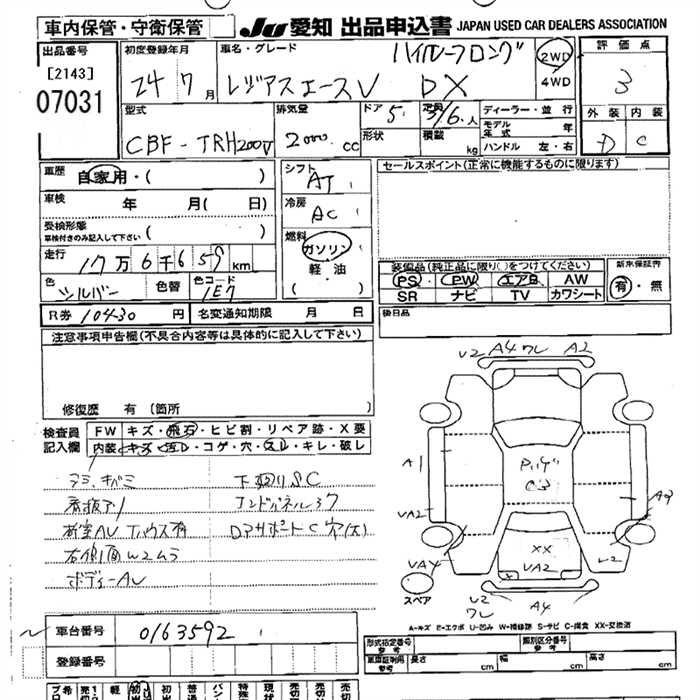 車内保管・守衛保管
JU 愛知 出品申込書 JAPAN USED CAR DEALERS ASSOCIATION
出品番号
[2143]
07031
初度登録年月
24年 7月
車名・グレード
ハイルーフロング
レジアスエースV DX
2WD
4WD
評価点
3
外装 内装
D C
型式
CBF-TRH200V
排気量
2000 cc
ドア
5
形状
定員
3/6人
積載
kg
ディーラー・並行
モデル年式 年
ハンドル 左・右
車歴
自家用・( )
車検
年 月( 日)
受検形態
車検付きのみ記入して下さい ( )
走行
17万6千659 km
色
シルバー
色替
色コード
1E7
シフト
AT
冷房
AC
燃料
ガソリン
軽油
セールスポイント(正常に機能するものに限ります)
装備品(純正品に限り( )をつけてください)
PS PW エアB AW
SR ナビ TV カワシート
新車保証書
有・無
R券 10430 円
名変通知期限 月 日
後日品
注意事項申告欄(不具合内容等は具体的に記入して下さい)
修復歴 有 (箇所
検査員
記入欄
FW キズ・飛石・ヒビ割・リペア跡・X要
内装 キズ・汚レ・コゲ・穴・スレ・キレ・破レ
下廻りSC
右側面W2ムラ
ボディーAU
V2 A4 ワレ A2
A1
VA2
VA4
XX
VA2
A9
V2
V2
ワレ
A4
スペア
A-キズ E-エクボ U-凹み W-補修跡 S-サビ C-腐食 XX-交換済
車台番号
0163592
登録番号
形式指定番号
参考
類別区分番号
参考
車庫証明用
参考
長さ cm 幅 cm 高さ cm